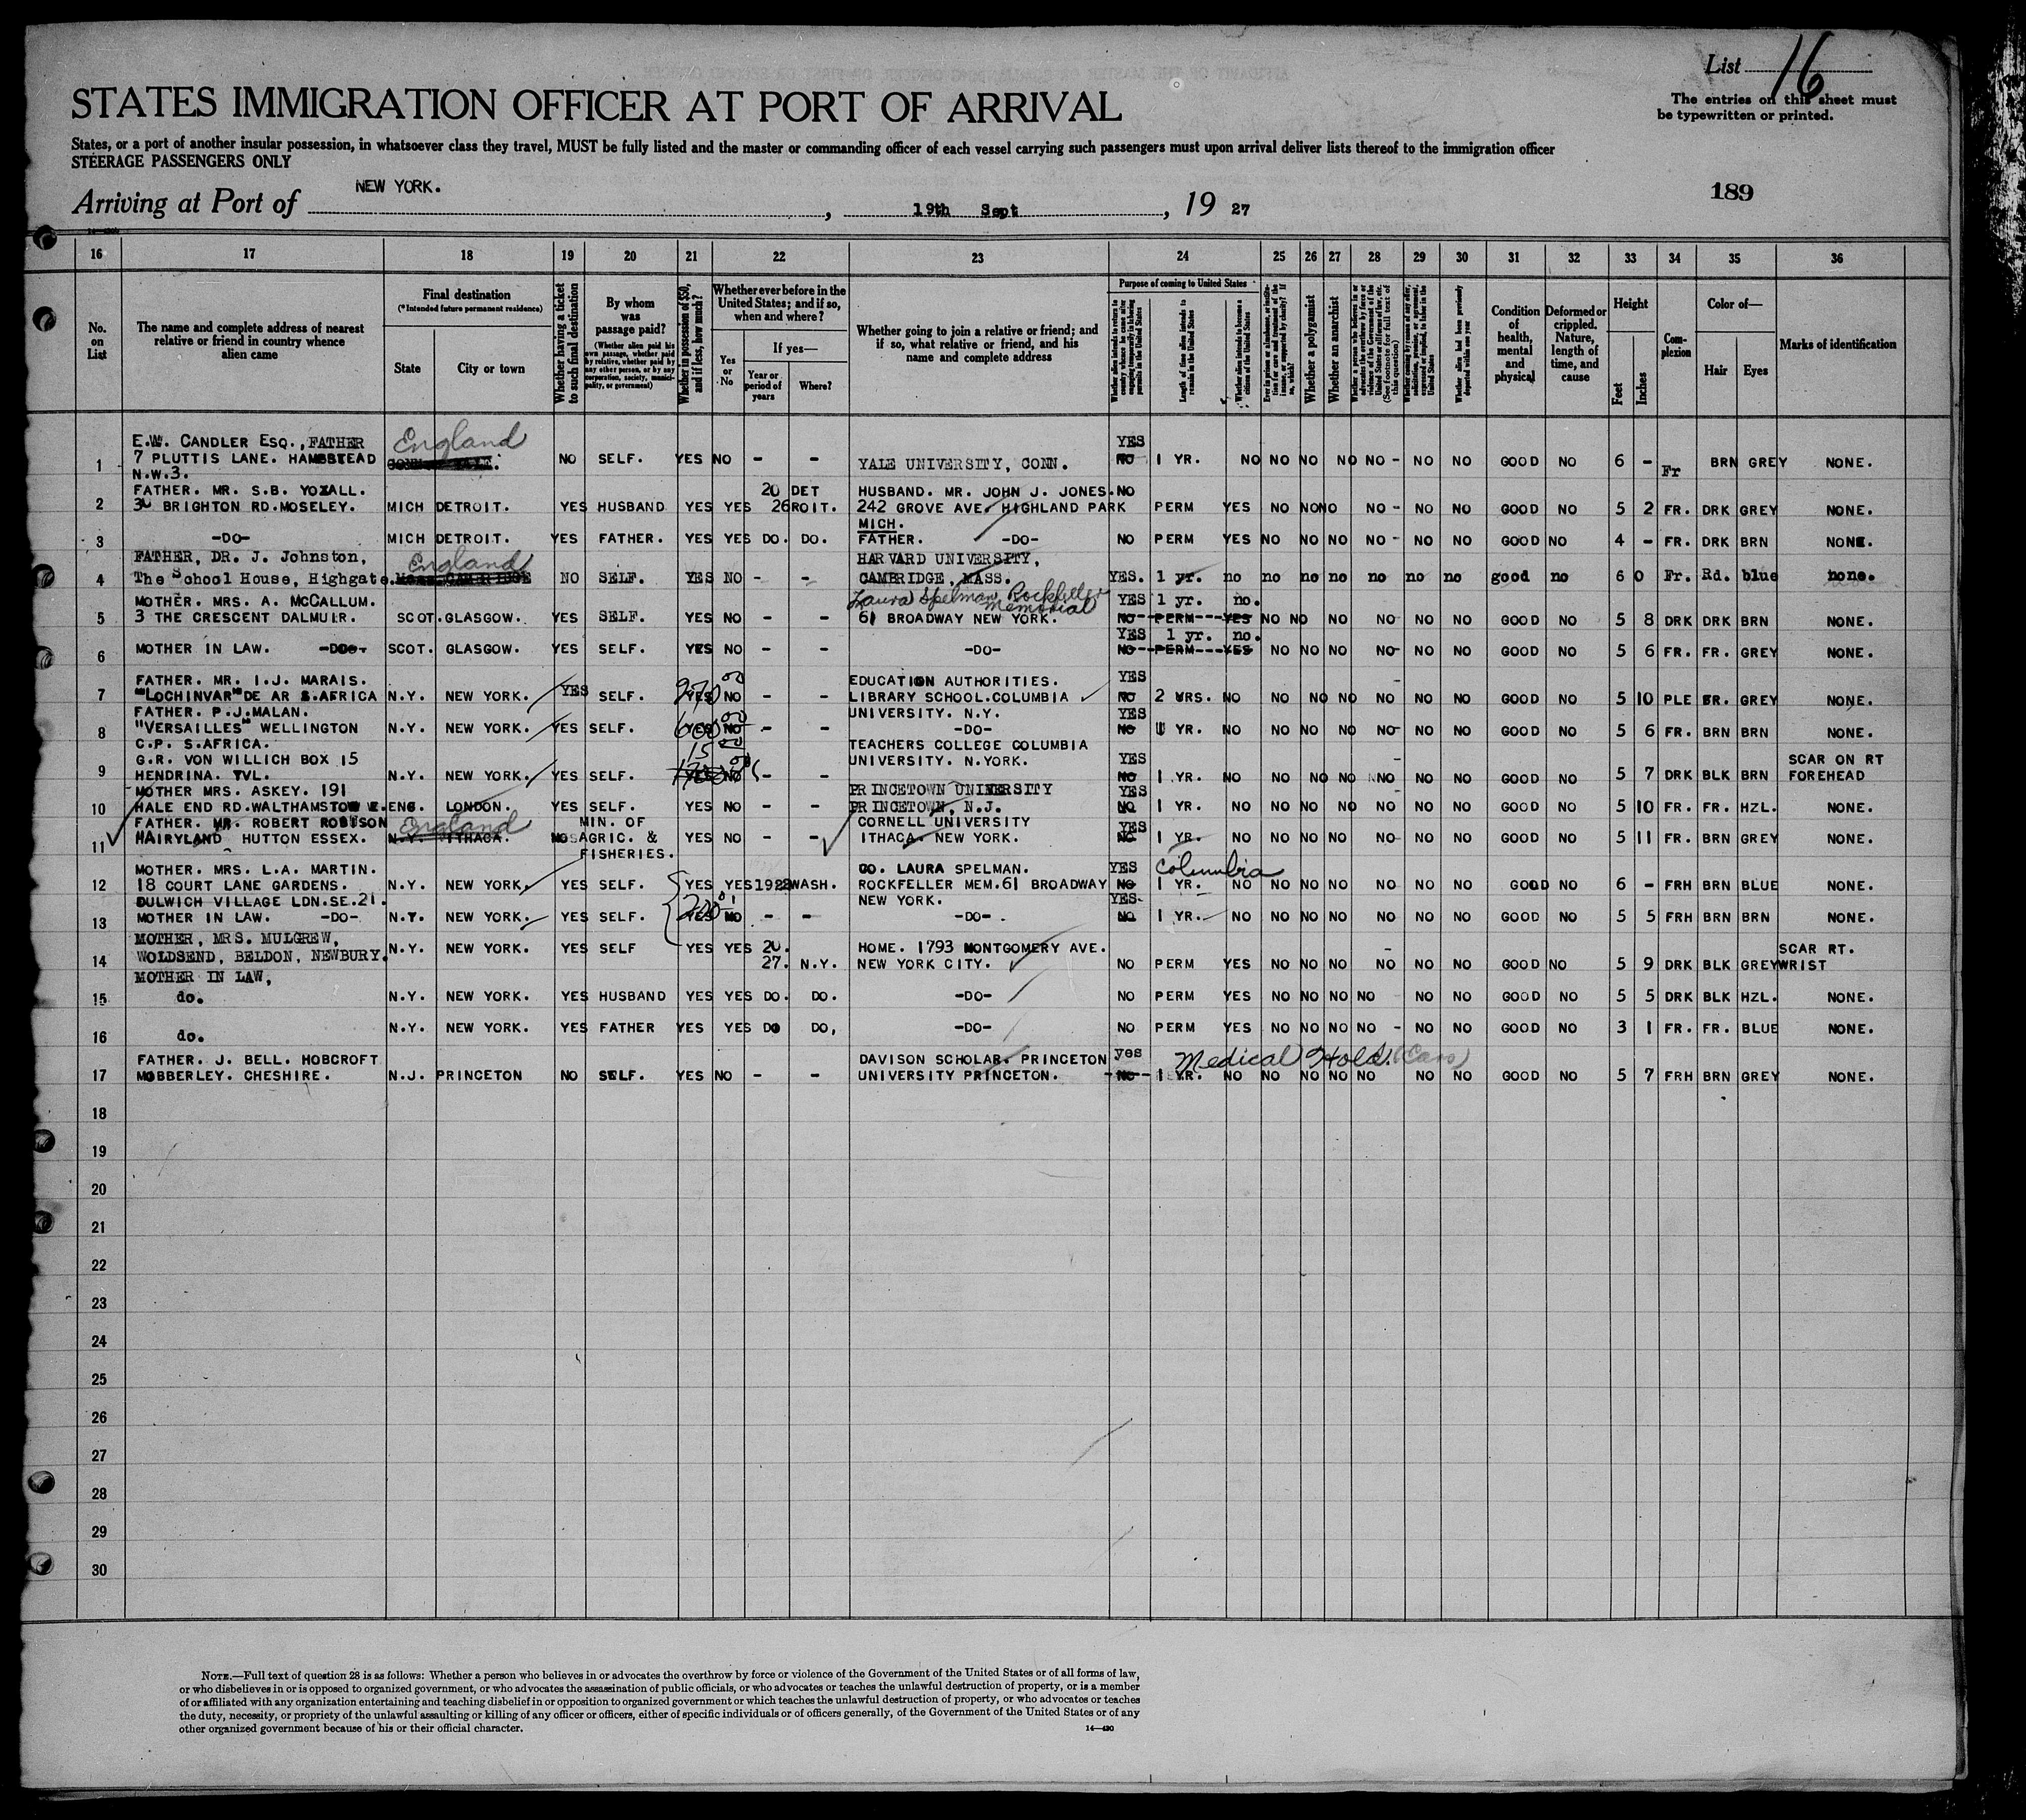 List 16
STATES IMMIGRATION OFFICER AT PORT OF ARRIVAL
The entries on this sheet must
be typewritten or printed.
States, or a port of another insular possession, in whatsoever class they travel, MUST be fully listed and the master or commanding officer of each vessel carrying such passengers must upon arrival deliver lists thereof to the immigration officer
STEERAGE PASSENGERS ONLY
189
Arriving at Port of NEW YORK. , 19th Sept , 19 27
16 17 18 19 20 21 22 23 24 25 26 27 28 29 30 31 32 33 34 35 36
No. on List
The name and complete address of nearest relative or friend in country whence alien came
Final destination
(*Intended future permanent residence)
State
City or town
Whether having a ticket to such final destination
By whom was passage paid?
(Whether alien paid his own passage, whether paid by relative, whether paid by any other person, or by any corporation, society, municipality, or government)
Whether in possession of $50, and if less, how much?
Whether ever before in the United States; and if so, when and where?
Yes or No
If yes—
Year or period of years
Where?
Whether going to join a relative or friend; and if so, what relative or friend, and his name and complete address
Purpose of coming to United States
Length of time alien intends to remain in the United States
Whether alien intends to become a citizen of the United States
Whether a polygamist
Whether an anarchist
Whether alien had been previously deported within one year
Condition of health, mental and physical
Deformed or crippled. Nature, length of time, and cause
Height
Feet
Inches
Complexion
Color of—
Hair
Eyes
Marks of identification
E.W. CANDLER ESQ., FATHER England YES
1 7 PLUTTIS LANE. HAMBSTEAD NO SELF. YES NO - - YALE UNIVERSITY, CONN. NO 1 YR. NO NO NO NO NO - NO NO GOOD NO 6 - Fr BRN GREY NONE.
N.W.3.
FATHER. MR. S.B. YOXALL. 20 DET HUSBAND. MR. JOHN J. JONES. NO
2 30 BRIGHTON RD.MOSELEY. MICH DETROIT. YES HUSBAND YES YES 26 ROIT. 242 GROVE AVE. HIGHLAND PARK PERM YES NO NO NO NO - NO NO GOOD NO 5 2 FR. DRK GREY NONE.
MICH.
3 -DO- MICH DETROIT. YES FATHER. YES YES DO. DO. FATHER. -DO- NO PERM YES NO NO NO NO - NO NO GOOD NO 4 - FR. DRK BRN NONE.
FATHER, DR. J. Johnston, England HARVARD UNIVERSITY,
4 The School House, Highgate. Mass. CAMBRIDGE NO SELF. YES NO - - CAMBRIDGE, MASS. YES. 1 yr. no no no no no no no good no 6 0 Fr. Rd. blue none.
MOTHER. MRS. A. McCALLUM. Laura Spelman Rockfeller Memorial YES 1 yr. no.
5 3 THE CRESCENT DALMUIR. SCOT. GLASGOW. YES SELF. YES NO - - 61 BROADWAY NEW YORK. NO PERM YES NO NO NO NO- NO NO GOOD NO 5 8 DRK DRK BRN NONE.
YES 1 yr. no.
6 MOTHER IN LAW. -DO- SCOT. GLASGOW. YES SELF. YES NO - - -DO- NO PERM YES NO NO NO NO- NO NO GOOD NO 5 6 FR. FR. GREY NONE.
FATHER. MR. I.J. MARAIS. 270 00 EDUCATION AUTHORITIES. YES
7 "LOCHINVAR" DE AR S.AFRICA N.Y. NEW YORK. YES SELF. YES NO - - LIBRARY SCHOOL.COLUMBIA NO 2 YRS. NO NO NO NO NO NO NO GOOD NO 5 10 PLE BR. GREY NONE.
FATHER. P.J.MALAN. 600 00 UNIVERSITY. N.Y. YES
8 "VERSAILLES" WELLINGTON N.Y. NEW YORK. YES SELF. YES NO - - -DO- NO 1 YR. NO NO NO NO NO NO NO GOOD NO 5 6 FR. BRN BRN NONE.
C.P. S.AFRICA. 15 00 TEACHERS COLLEGE COLUMBIA
G.R. VON WILLICH BOX 15 UNIVERSITY. N.YORK. YES SCAR ON RT
9 HENDRINA. TVL. N.Y. NEW YORK. YES SELF. YES NO - - NO 1 YR. NO NO NO NO NO NO NO GOOD NO 5 7 DRK BLK BRN FOREHEAD
MOTHER MRS. ASKEY. 191 PRINCETOWN UNIVERSITY YES
10 HALE END RD.WALTHAMSTOW E. ENG. LONDON. YES SELF. YES NO - - PRINCETOWN, N.J. NO 1 YR. NO NO NO NO NO NO NO GOOD NO 5 10 FR. FR. HZL. NONE.
FATHER. MR. ROBERT ROBTSON England MIN. OF CORNELL UNIVERSITY YES
11 HAIRYLAND HUTTON ESSEX. N.Y. ITHACA. NO AGRIC. & YES NO - - ITHACA. NEW YORK. NO 1 YR. NO NO NO NO NO- NO NO GOOD NO 5 11 FR. BRN GREY NONE.
FISHERIES.
MOTHER. MRS. L.A. MARTIN. CO. LAURA SPELMAN. YES Columbia
12 18 COURT LANE GARDENS. N.Y. NEW YORK. YES SELF. YES YES 1922 WASH. ROCKFELLER MEM.61 BROADWAY NO 1 YR. NO NO NO NO NO NO NO GOOD NO 6 - FRH BRN BLUE NONE.
DULWICH VILLAGE LDN.SE.21. 200 NEW YORK. YES-
13 MOTHER IN LAW. -DO- N.Y. NEW YORK. YES SELF. YES NO - - -DO-. NO 1 YR. NO NO NO NO NO NO NO GOOD NO 5 5 FRH BRN BRN NONE.
MOTHER, MRS. MULGREW, N.Y. NEW YORK. YES SELF YES YES 20. HOME. 1793 MONTGOMERY AVE. SCAR RT.
14 WOLDSEND, BELDON, NEWBURY. 27. N.Y. NEW YORK CITY. NO PERM YES NO NO NO NO NO NO GOOD NO 5 9 DRK BLK GREY WRIST
MOTHER IN LAW,
15 do. N.Y. NEW YORK. YES HUSBAND YES YES DO. DO. -DO- NO PERM YES NO NO NO NO NO NO GOOD NO 5 5 DRK BLK HZL. NONE.
16 do. N.Y. NEW YORK. YES FATHER YES YES DO DO, -DO- NO PERM YES NO NO NO NO - NO NO GOOD NO 3 1 FR. FR. BLUE NONE.
FATHER. J. BELL. HOBCROFT DAVISON SCHOLAR. PRINCETON yes Medical Hold.
17 MOBBERLEY. CHESHIRE. N.J. PRINCETON NO SELF. YES NO - - UNIVERSITY PRINCETON. NO 1 YR. NO NO NO NO NO NO NO GOOD NO 5 7 FRH BRN GREY NONE.
18
19
20
21
22
23
24
25
26
27
28
29
30
NOTE.—Full text of question 28 is as follows: Whether a person who believes in or advocates the overthrow by force or violence of the Government of the United States or of all forms of law,
or who disbelieves in or is opposed to organized government, or who advocates the assassination of public officials, or who advocates or teaches the unlawful destruction of property, or is a member
of or affiliated with any organization entertaining and teaching disbelief in or opposition to organized government or which teaches the unlawful destruction of property, or who advocates or teaches
the duty, necessity, or propriety of the unlawful assaulting or killing of any officer or officers, either of specific individuals or of officers generally, of the Government of the United States or of any
other organized government because of his or their official character. 14—430